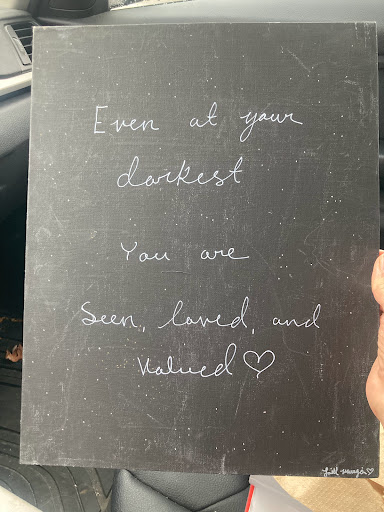 Even at your
darkest
You are
Seen, loved, and
Valued ♡